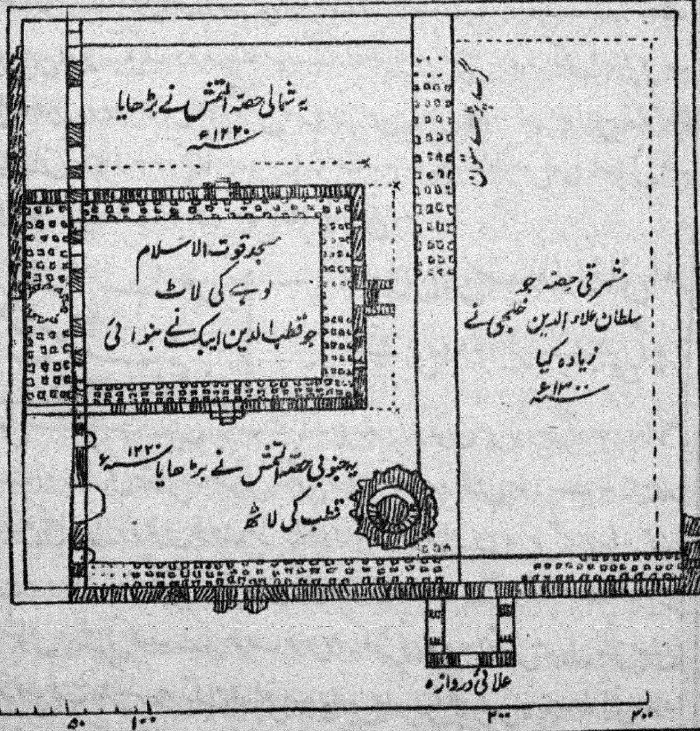 یہ شمالی حصہ التمش نے بڑھایا
۱۲۲۰ء
مسجد قوت الاسلام
لوہے کی لاٹ
جو قطب الدین ایبک نے بنوائی
مشرقی حصہ جو
سلطان علاء الدین خلجی نے
زیادہ کیا
۱۳۰۰ء
یہ جنوبی حصہ التمش نے بڑھایا ۱۲۲۰ء
قطب کی لاٹھ
علائی دروازہ
۵۰ ۱۰۰ ۲۰۰ ۳۰۰